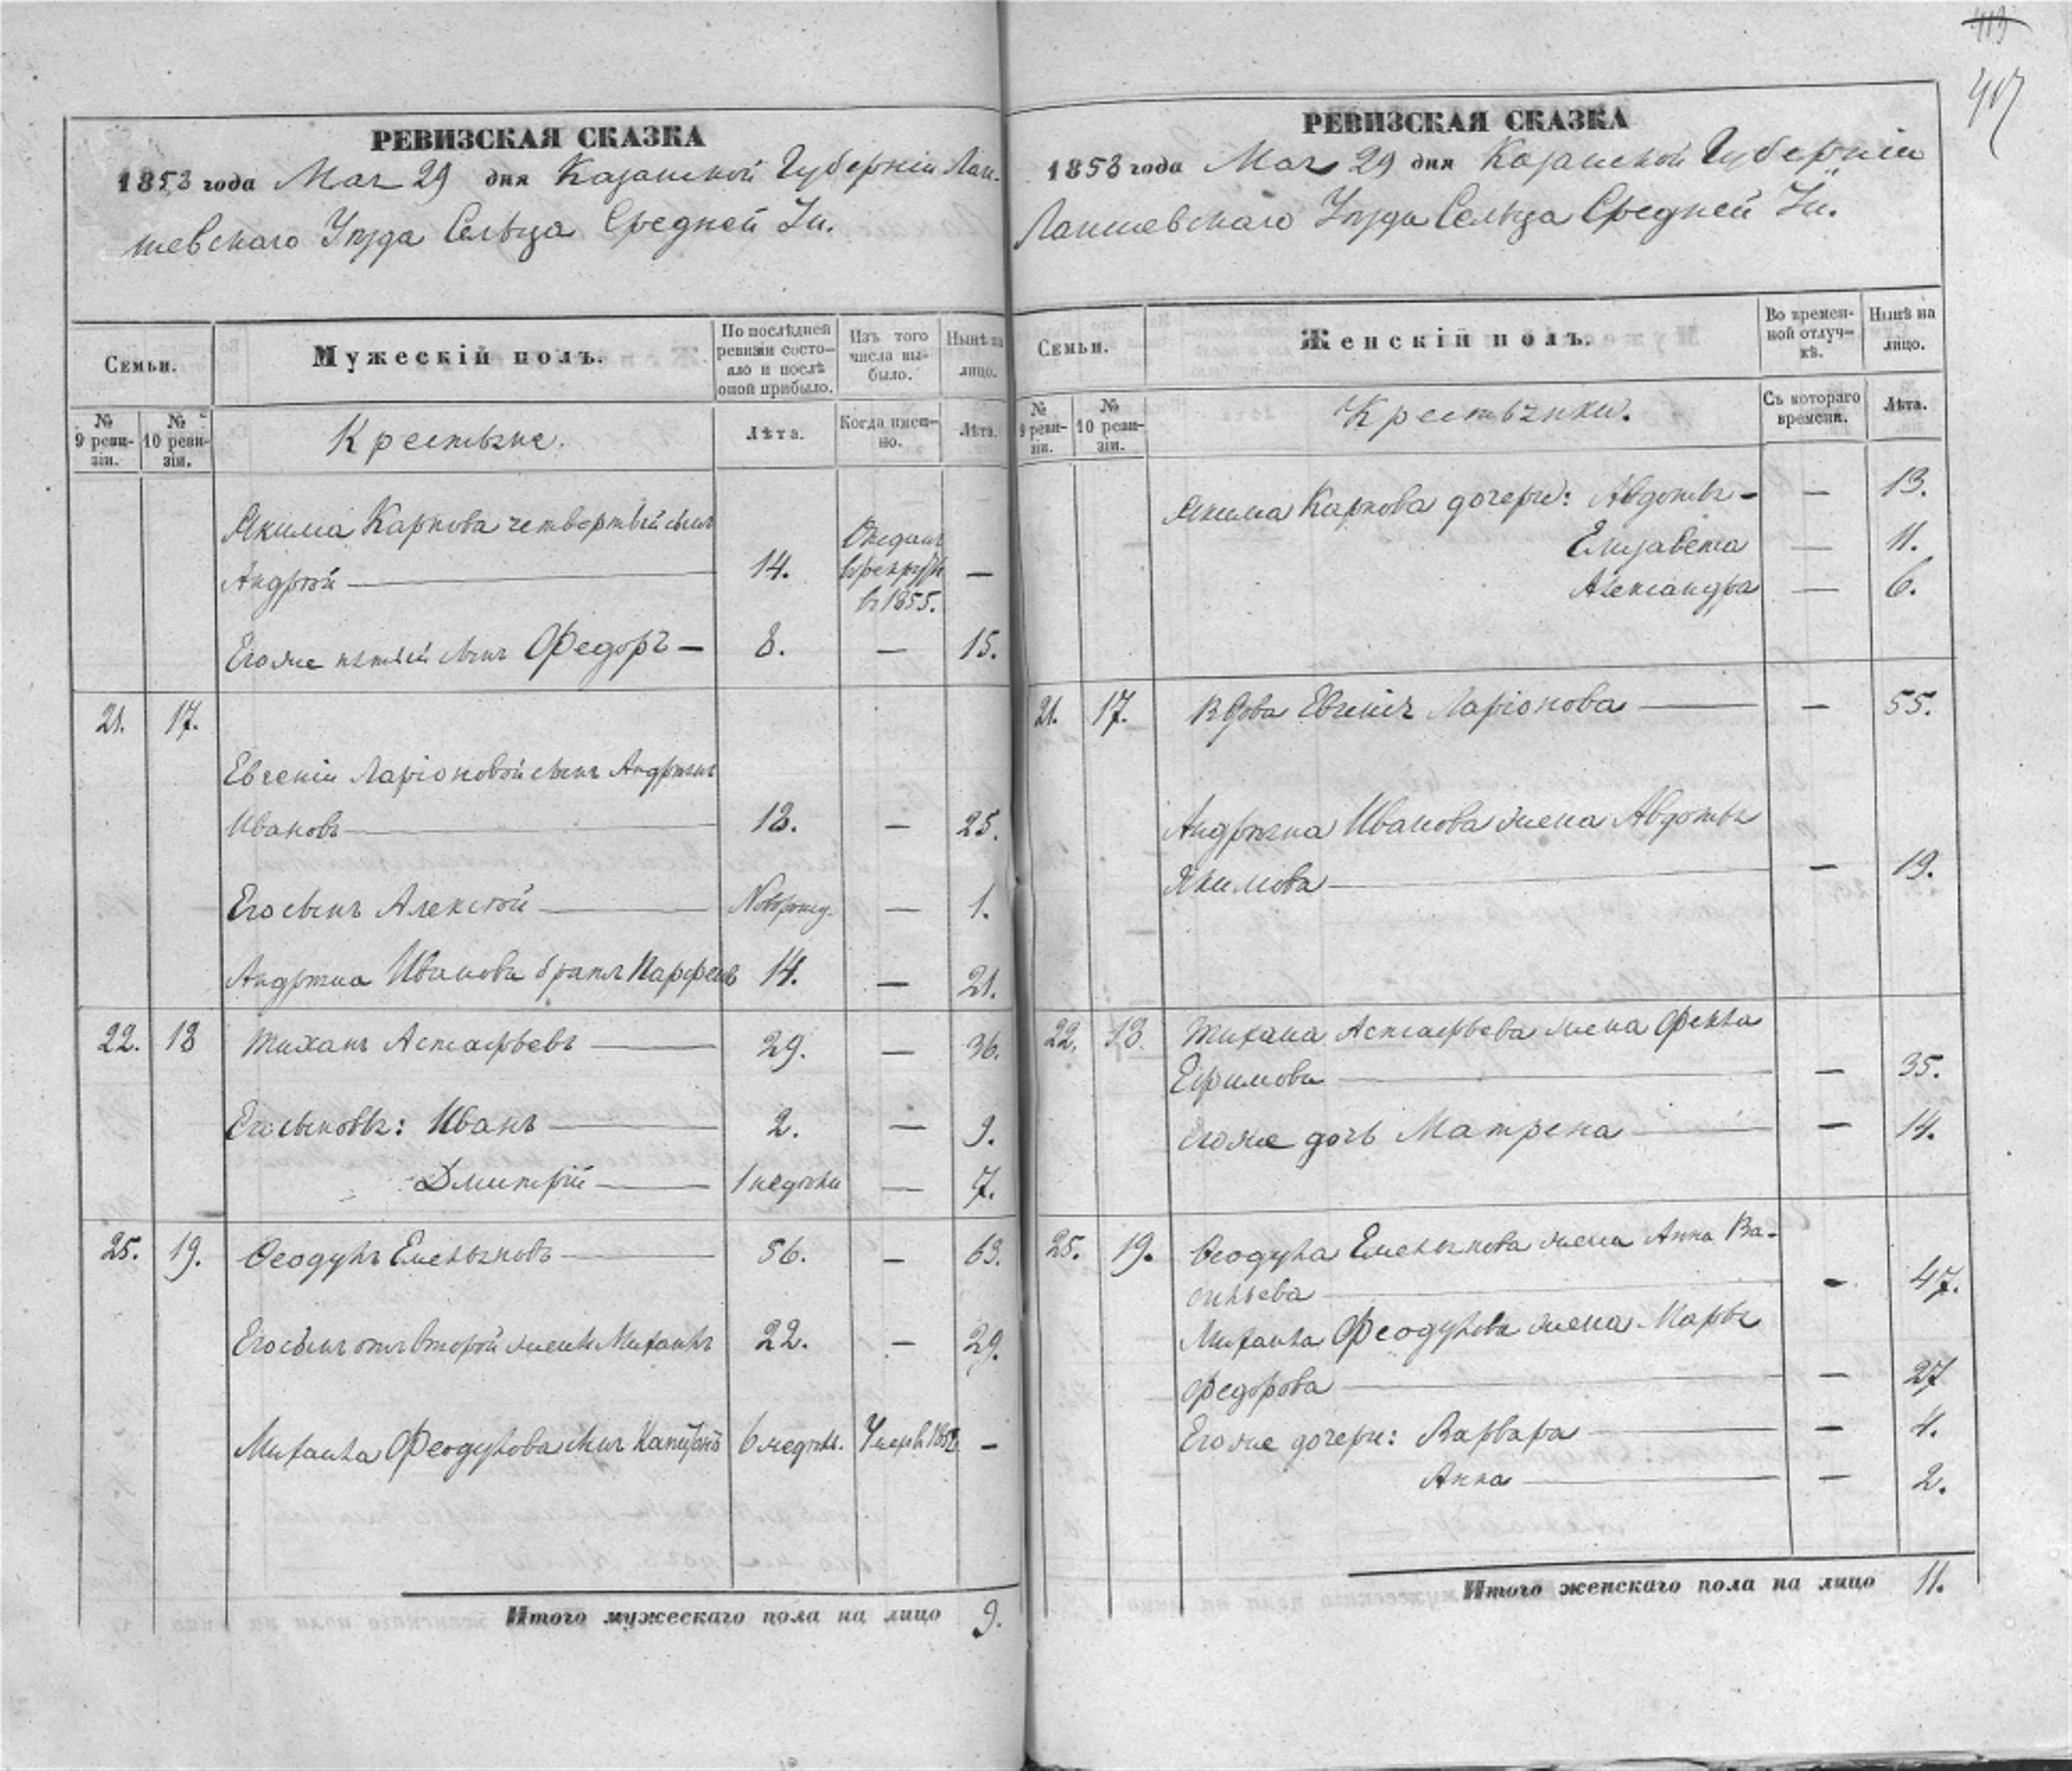 413
417
РЕВИЗСКАЯ СКАЗКА
1858 года Мая 29 дня Казанской Губерніи Лаи-
шевскаго Уѣзда Сельца Средней Іи.
Семьи.
Мужескій полъ.
По послѣдней ревизіи состояло и послѣ оной прибыло.
Изъ того числа выбыло.
Нынѣ на лицо.
№ 9 ревизіи.
№ 10 ревизіи.
Крестьяне.
Лѣта.
Когда именно.
Лѣта.
Якима Карпова четвертый сынъ
Андрей — 14. Отданъ въ рекруты въ 1855. —
Его же пятый сынъ Федоръ — 8. — 15.
21. 17.
Евгеніи Ларіоновой сынъ Андреянъ
Ивановъ — 18. — 25.
Его сынъ Алексѣй — Новорожд. — 1.
Андреяна Иванова братъ Парфенъ 14. — 21.
22. 18 Михаилъ Астафьевъ — 29. — 36.
Его сыновья: Иванъ — 2. — 9.
Дмитрій — 1 недѣли — 7.
25. 19. Феодулъ Емельяновъ — 56. — 63.
Его сынъ отъ второй жены Михаилъ 22. — 29.
Михаила Феодулова сынъ Капитонъ 6 недѣль. Умеръ 1852 —
Итого мужескаго пола на лицо 9.
РЕВИЗСКАЯ СКАЗКА
1858 года Мая 29 дня Казанской Губерніи
Лаишевскаго Уѣзда Сельца Средней Іи.
Семьи.
Женскій полъ.
Во временной отлучкѣ.
Нынѣ на лицо.
№ 9 ревизіи.
№ 10 ревизіи.
Крестьянки.
Съ котораго времени.
Лѣта.
Якима Карпова дочери: Авдотья — — 13.
Елизавета — 11.
Александра — 6.
21. 17. Вдова Евгенія Ларіонова — — 55.
Андреяна Иванова жена Авдотья
Якимова — — 19.
22. 18. Михаила Астафьева жена Фекла
Ефимова — — 35.
Его же дочь Матрена — — 14.
25. 19. Феодула Емельянова жена Анна Ва-
сильева — — 47.
Михаила Феодулова жена Марья
Федорова — — 27
Его же дочери: Варвара — — 4.
Анна — — 2.
Итого женскаго пола на лицо 11.